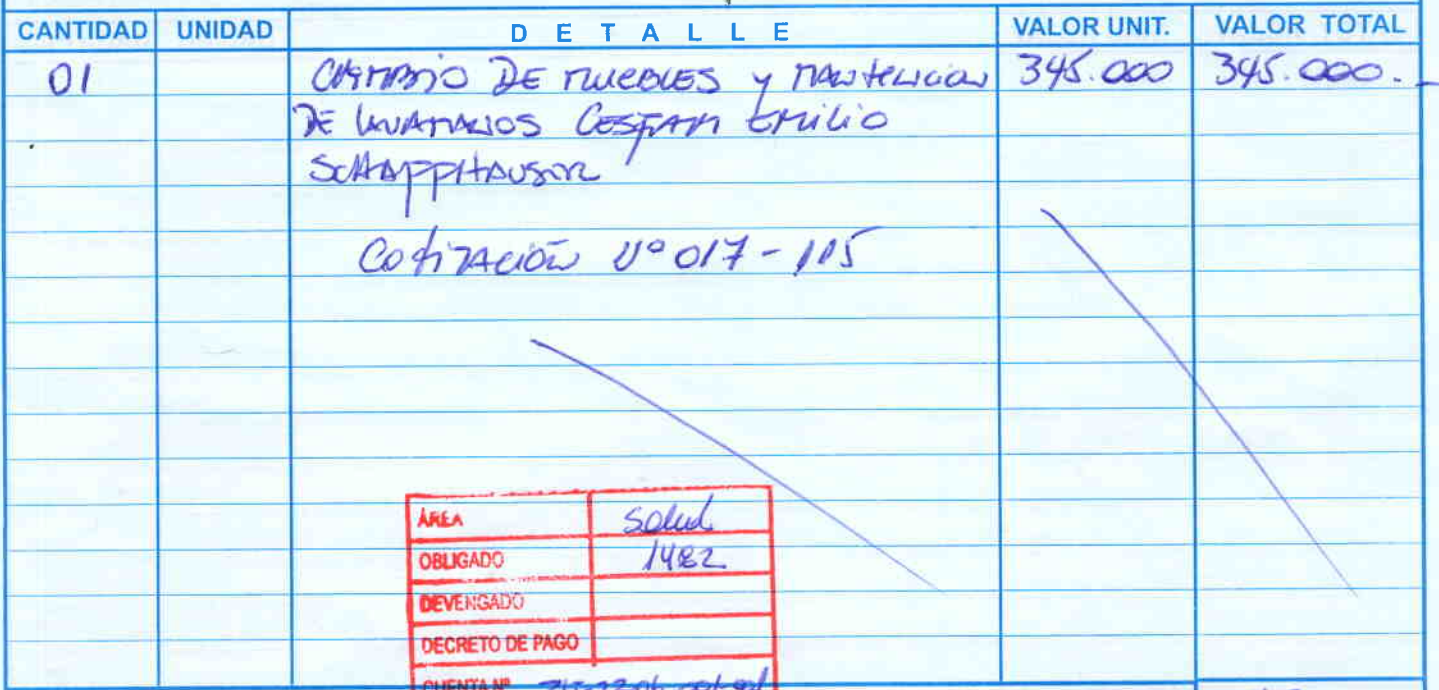 CANTIDAD UNIDAD DETALLE VALOR UNIT. VALOR TOTAL
01 CAMBIO DE MUEBLES y MANTENCION 345.000 345.000.-
DE LAVAMANOS CESFAM EMILIO
SCHAPPHAUSOR
Cotización Nº 017-115
ÁREA Salud
OBLIGADO 1482
DEVENGADO
DECRETO DE PAGO
CUENTA Nº